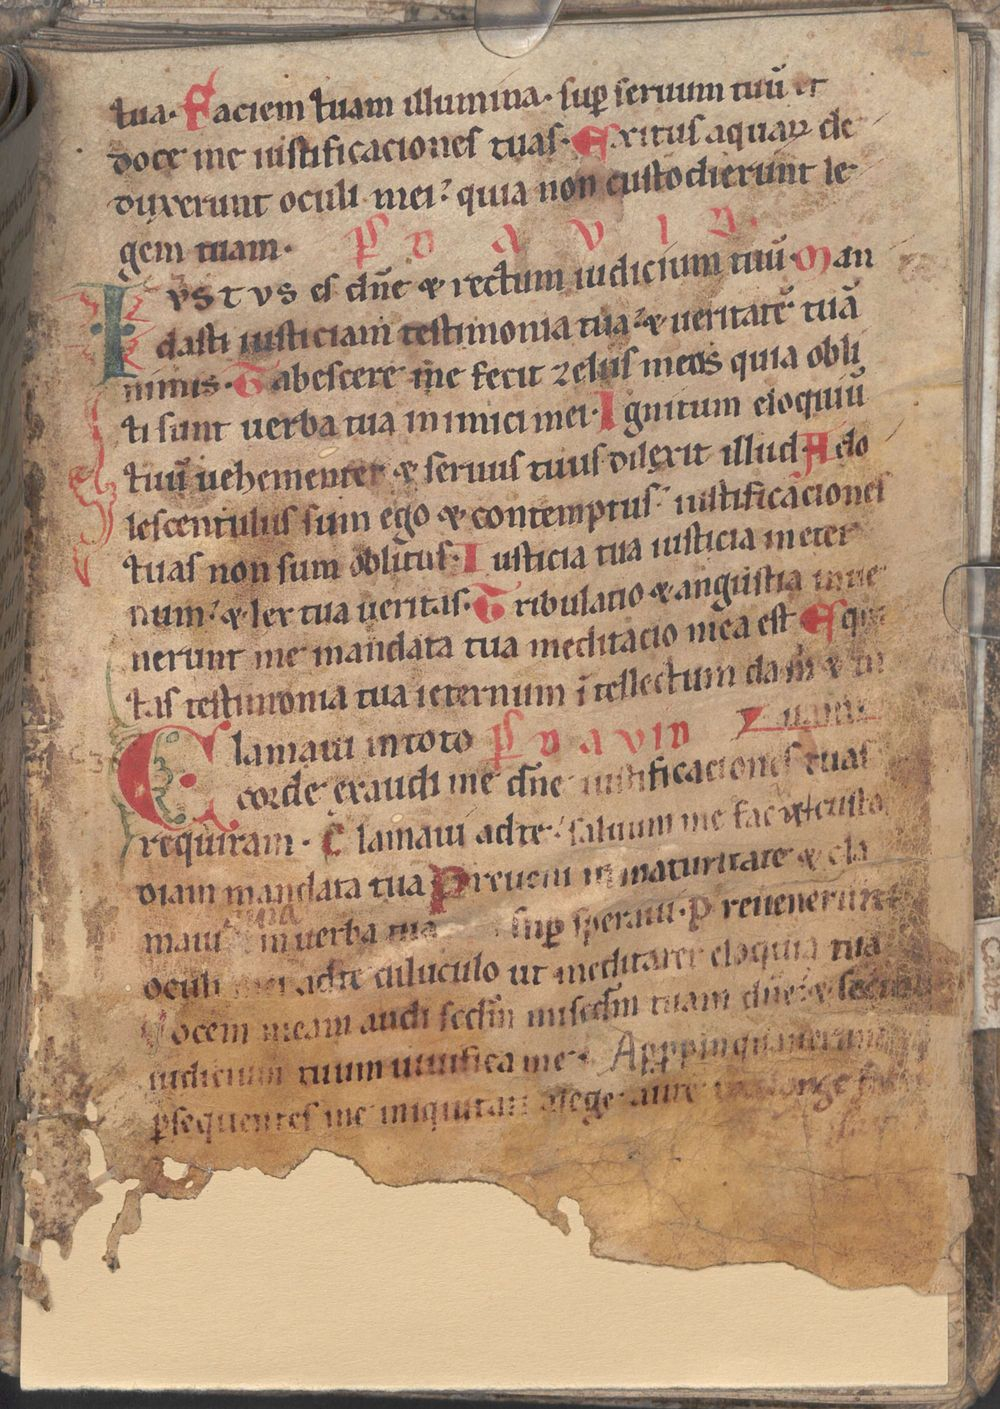 tua. Faciem tuam illumina. sup seruum tuū et
doce me iustificaciones tuas. Exitus aquaꝝ de
duxerunt oculi mei: quia non custodierunt le
gem tuam. Ps D A V I D.
IVSTVS es dn̄e & rectum iudicium tuū. Man
dasti iusticiam testimonia tua: & ueritatē tuā
nimis. Tabescere me fecit zelus meus quia obli
ti sunt uerba tua inimici mei. Ignitum eloquiū
tuū uehementer & seruus tuus dilexit illud. Ado
lescentulus sum ego & contemptus: iustificaciones
tuas non sum oblitus. Iusticia tua iusticia ineter
num: & lex tua ueritas. Tribulatio & angustia inue
nerunt me mandata tua meditacio mea est Equi
tas testimonia tua ieternum ītellectum da m̄ &
Clamaui intoto Ps D A V I D
corde exaudi me dn̄e iustificaciones tuas
requiram. Clamaui adte: saluum me fac ut custo
diam mandata tua Preueni in maturitate & cla
maui quia inuerba tua sup speraui. Preuenerunt
oculi mei adte diluculo ut meditarer eloquia tua
Vocem meam audi scdm̄ misc̄dm̄ tuam dn̄e: &
iudicium tuum uiuifica me. Appropinquauerunt
ꝑsequentes me iniquitati alege aute longe